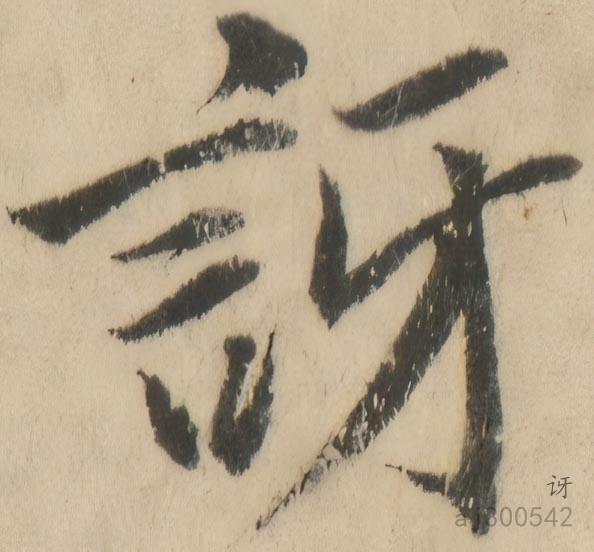 訝
讶
ay300542